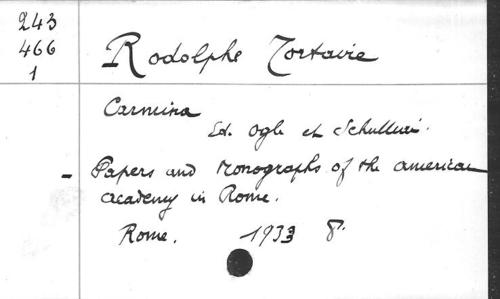 243
466
1
Rodolphe Tortaire
Carmina
Ed. Ogle et Schullian.
- Papers and Monographs of the american
academy in Rome.
Rome. 1933 8°.